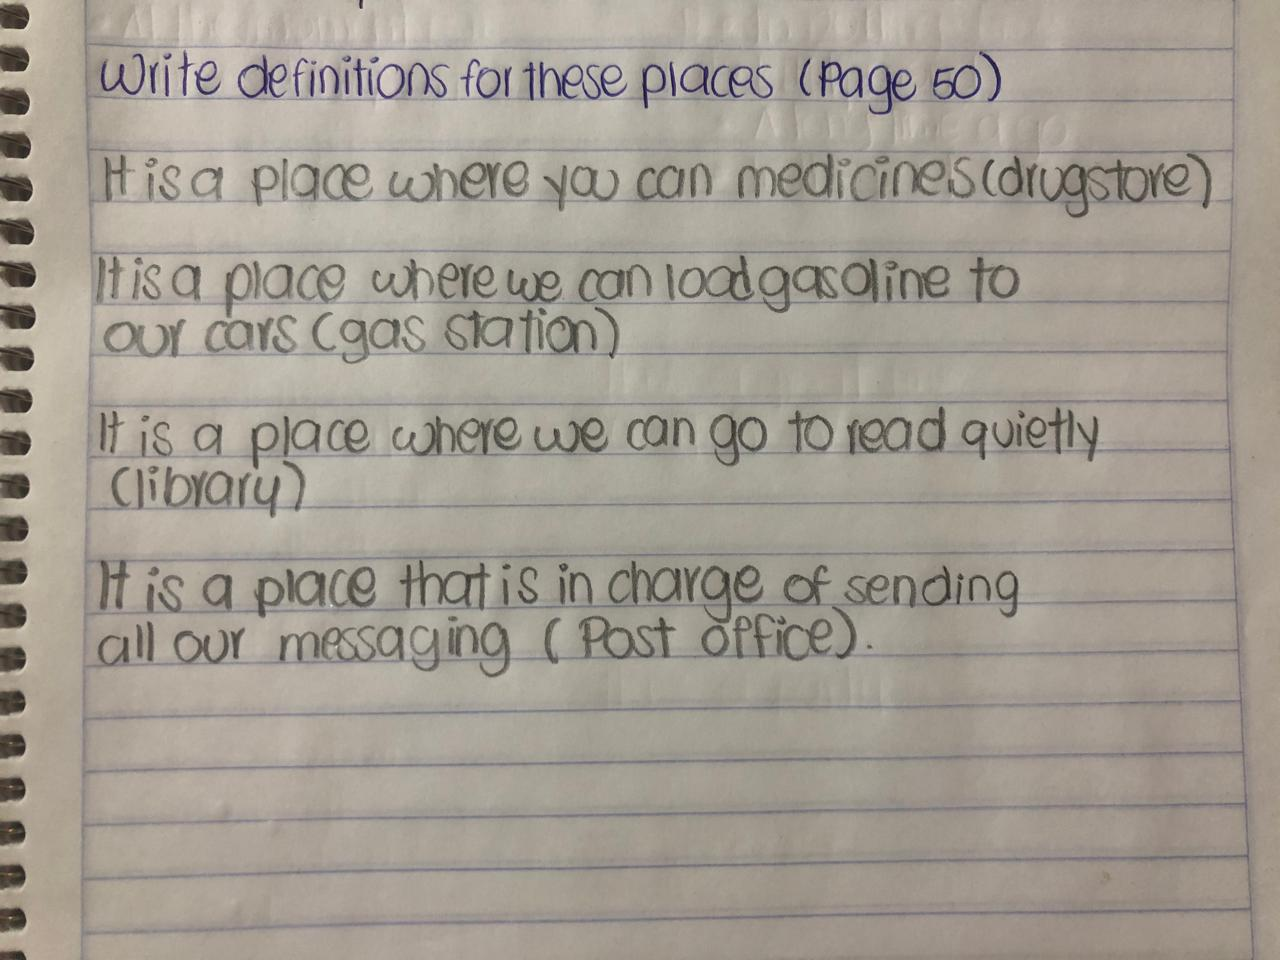 Write definitions for these places (Page 50)
It is a place where you can medicines (drugstore)
It is a place where we can load gasoline to
our cars (gas station)
It is a place where we can go to read quietly
(library)
It is a place that is in charge of sending
all our messaging (Post office).